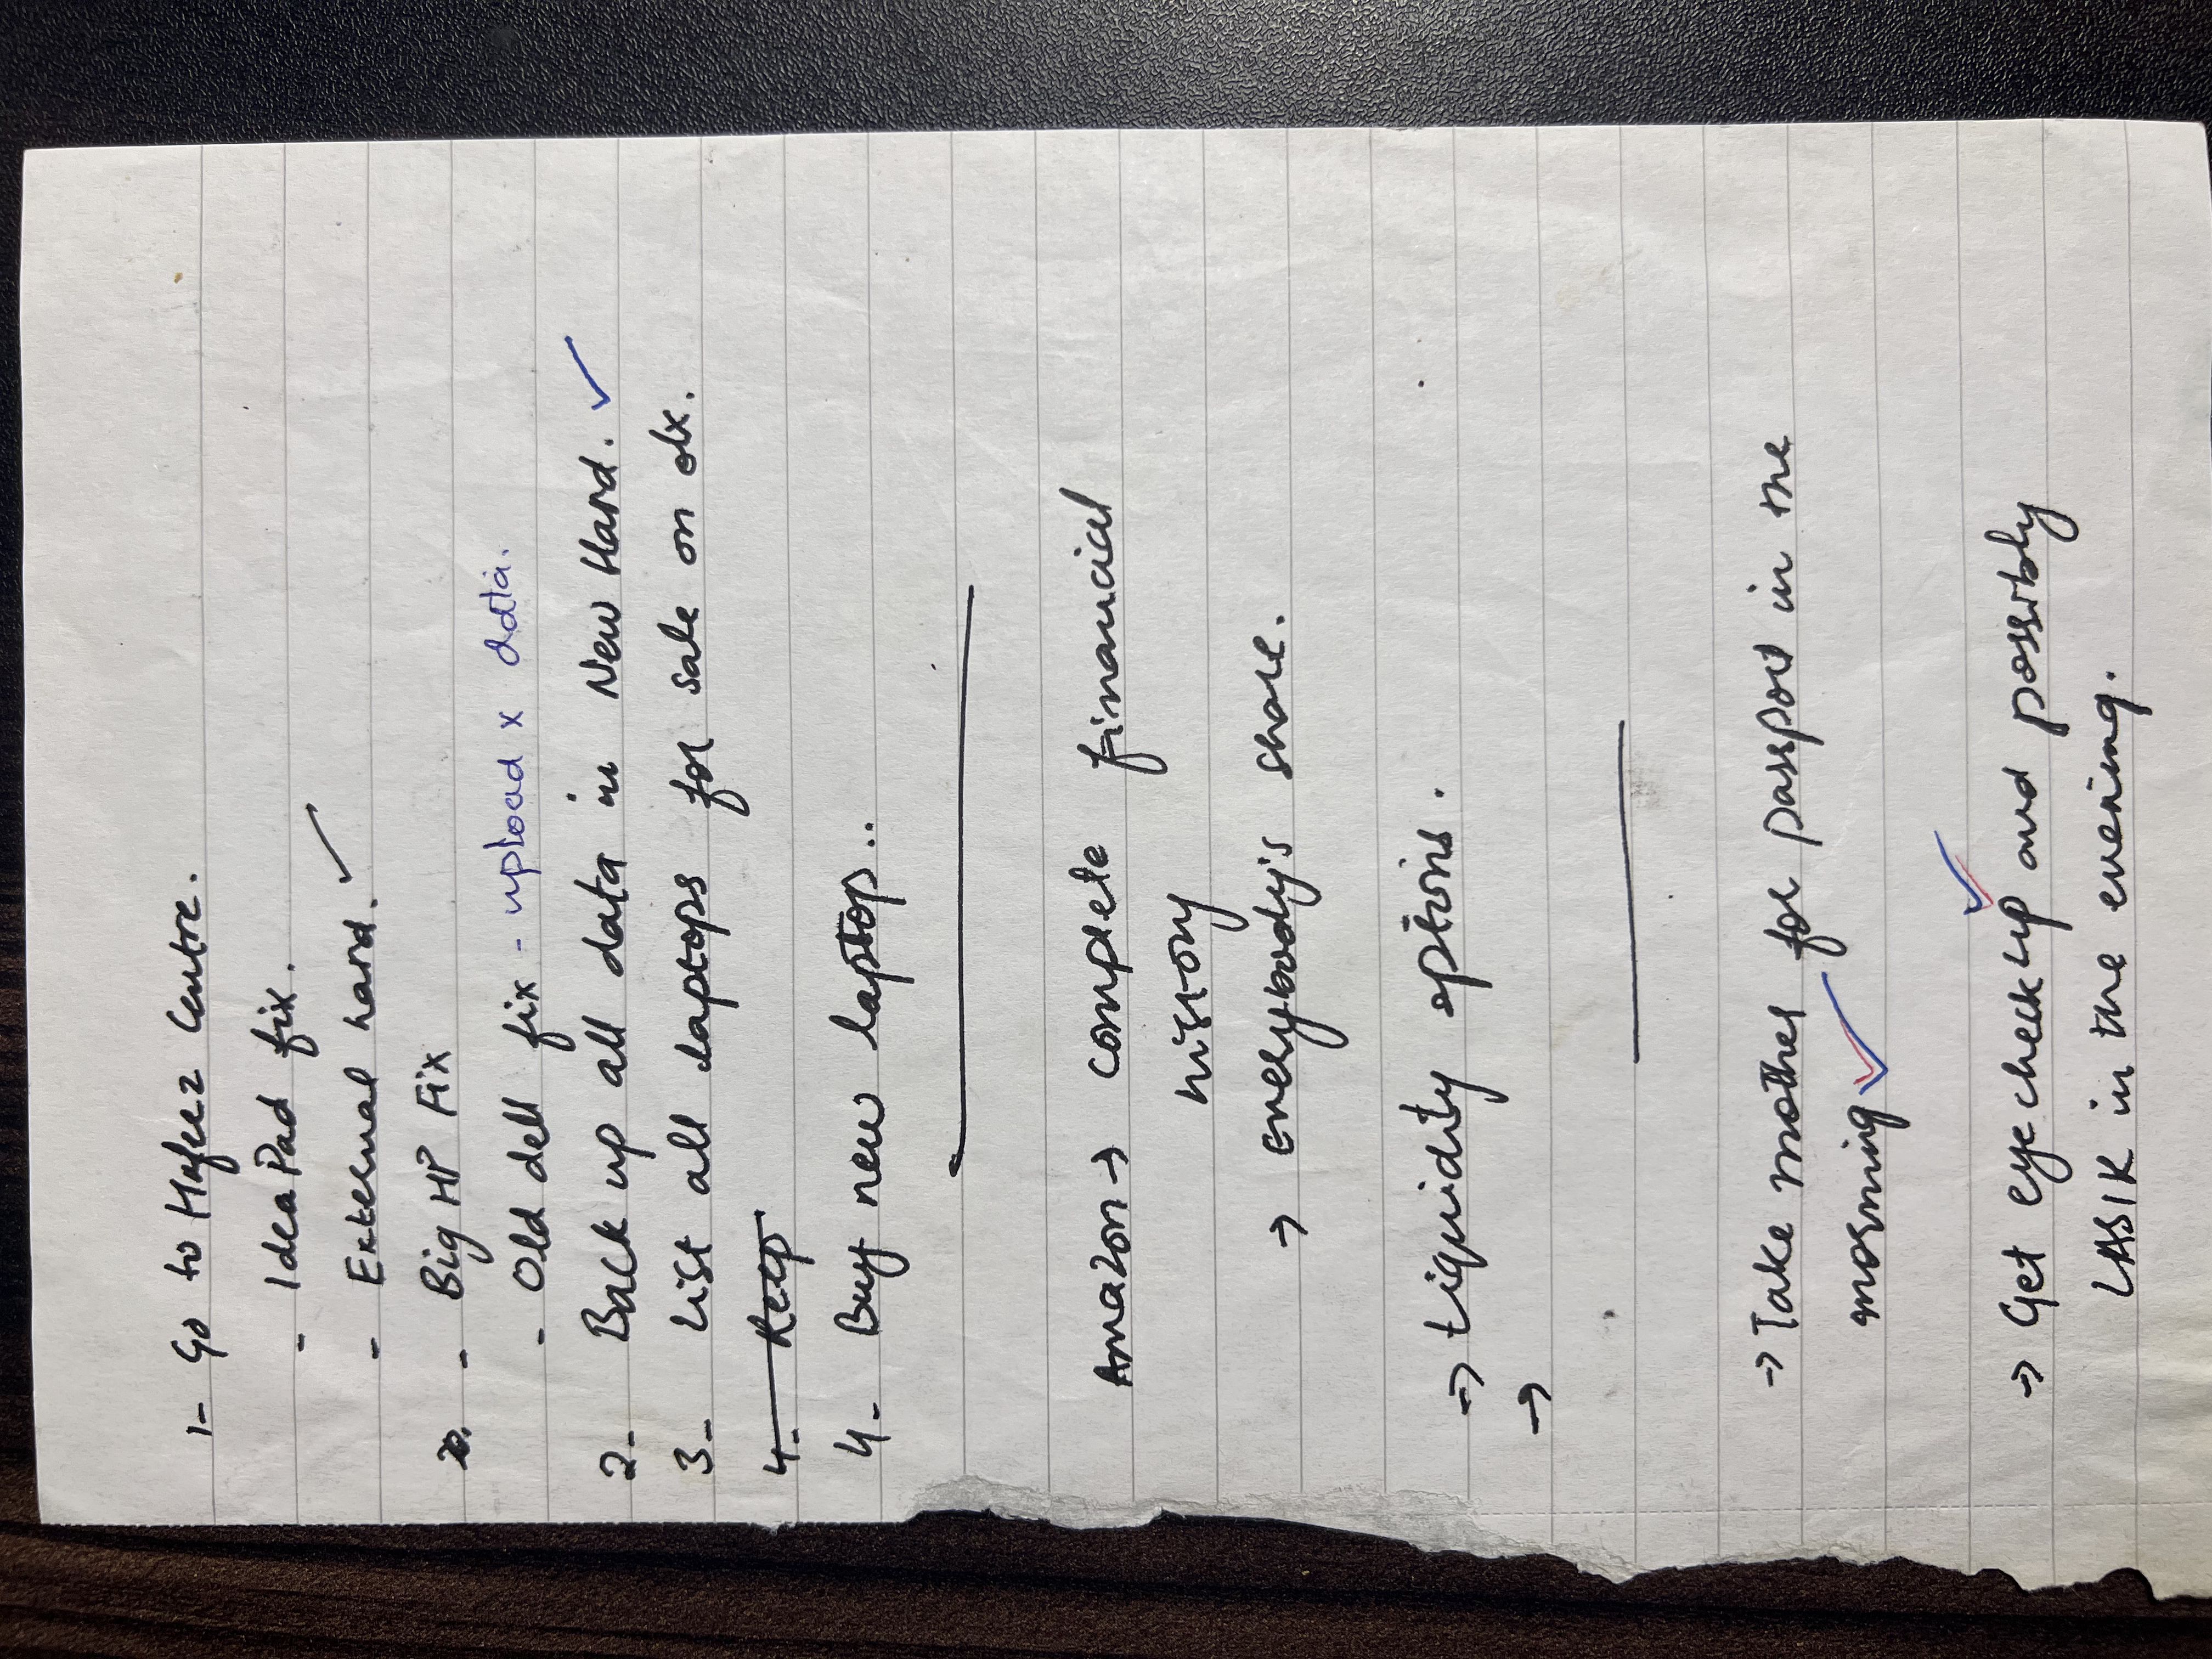 1- Go to Hafeez Centre.
- IdeaPad fix.
- External hard. ✓
- Big HP Fix
- Old dell fix - upload x data.
2- Back up all data in New Hard. ✓
3- List all laptops for sale on olx.
4- Keep
4- Buy new laptop..
Amazon → complete financial
history
→ everybody's share.
→ Liquidity options.
→
→ Take mother for passport in the
morning ✓
→ Get eye checkup and possibly ✓
LASIK in the evening.